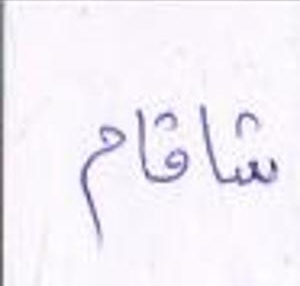 شاقام